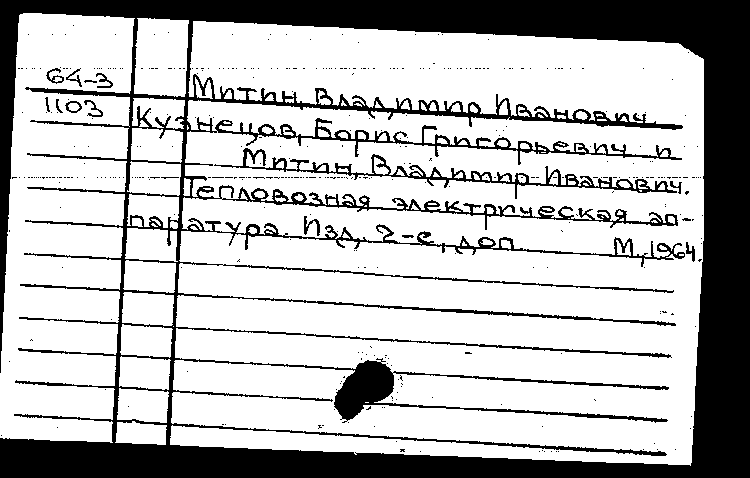 64-3 Митин, Владимир Иванович.
1103 Кузнецов, Борис Григорьевич и
Митин, Владимир Иванович.
Тепловозная электрическая ап-
паратура. Изд, 2-е, доп. М., 1964.